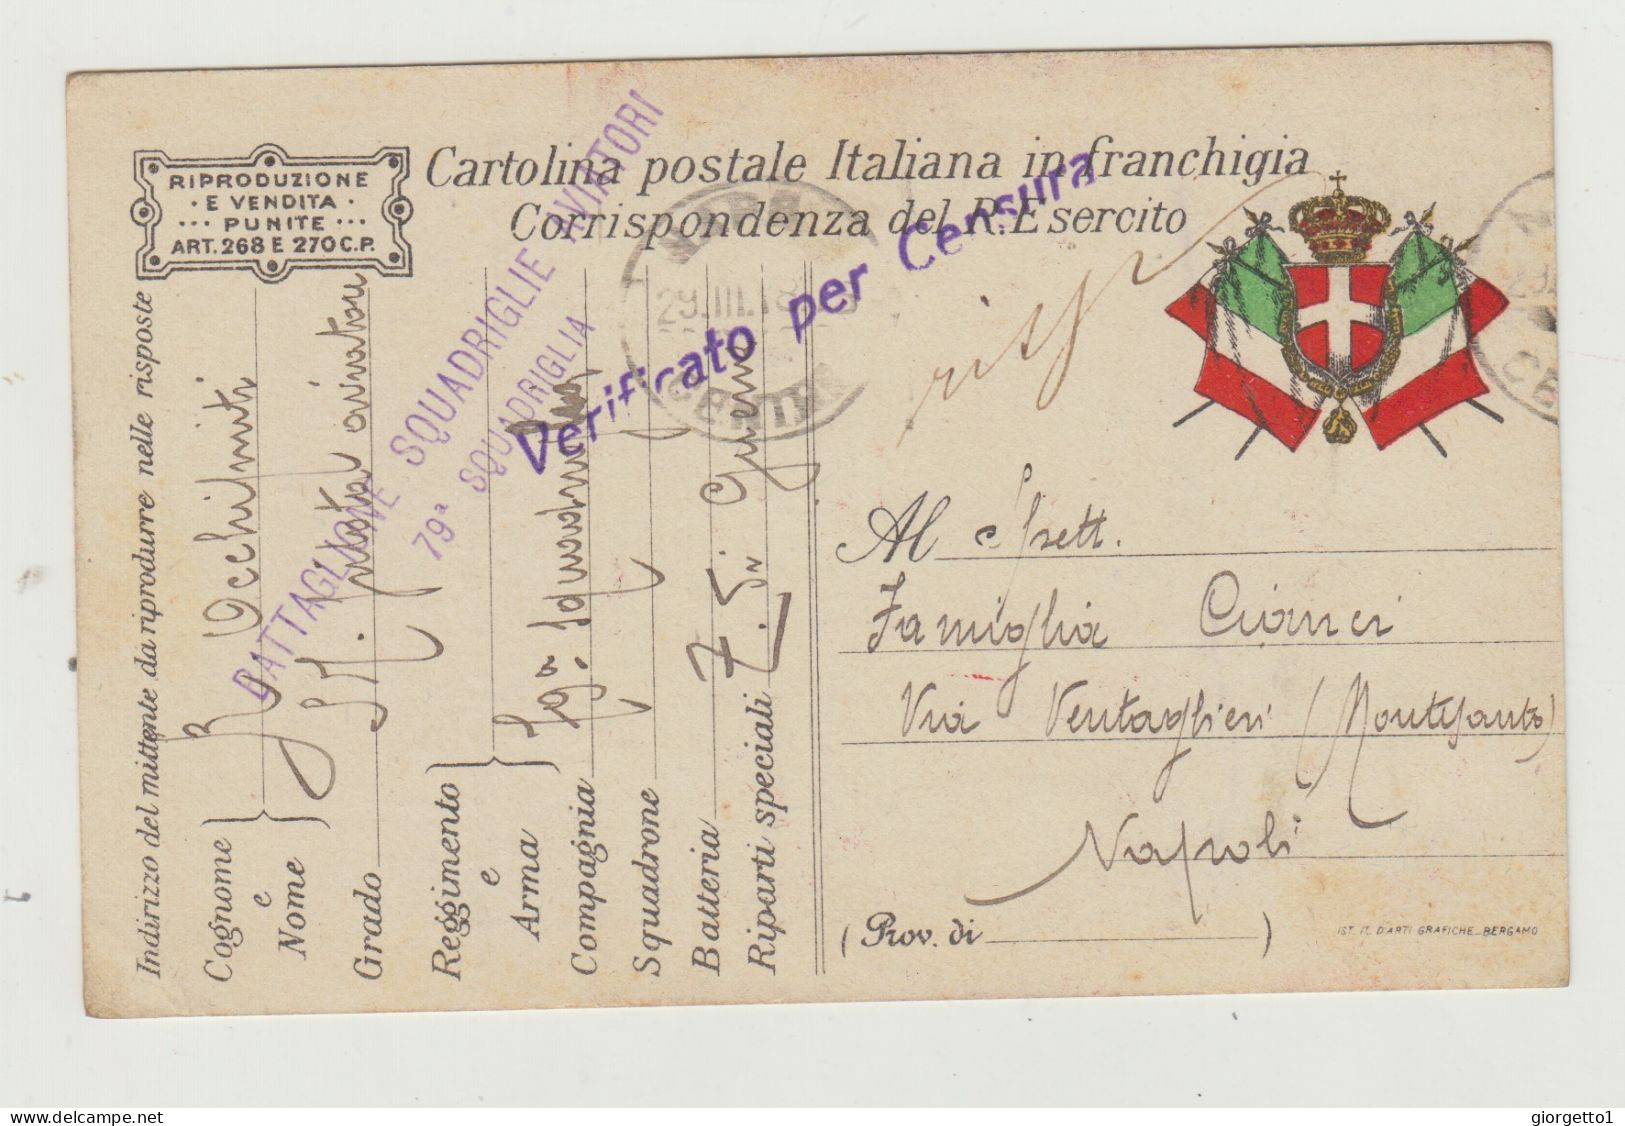 Cartolina postale Italiana in franchigia
Corrispondenza del R. Esercito
RIPRODUZIONE
· E VENDITA ·
··· PUNITE ···
ART. 268 E 270 C.P.
BATTAGLIONE SQUADRIGLIE AVIATORI
79ª SQUADRIGLIA
Verificato per Censura
29.III.18
CENTRO
Indirizzo del mittente da riprodurre nelle risposte
Cognome e Nome
Occhiniti
Grado
aviatore
Reggimento e Arma
79ª
Compagnia
Squadrone
Batteria
Z.
Guerra
Riparti speciali
Al Spett.
Famiglia Cianci
Via Ventaglieri (Montesanto)
Napoli
(Prov. di )
IST. IT. D'ARTI GRAFICHE - BERGAMO
www.delcampe.net
giorgetto1